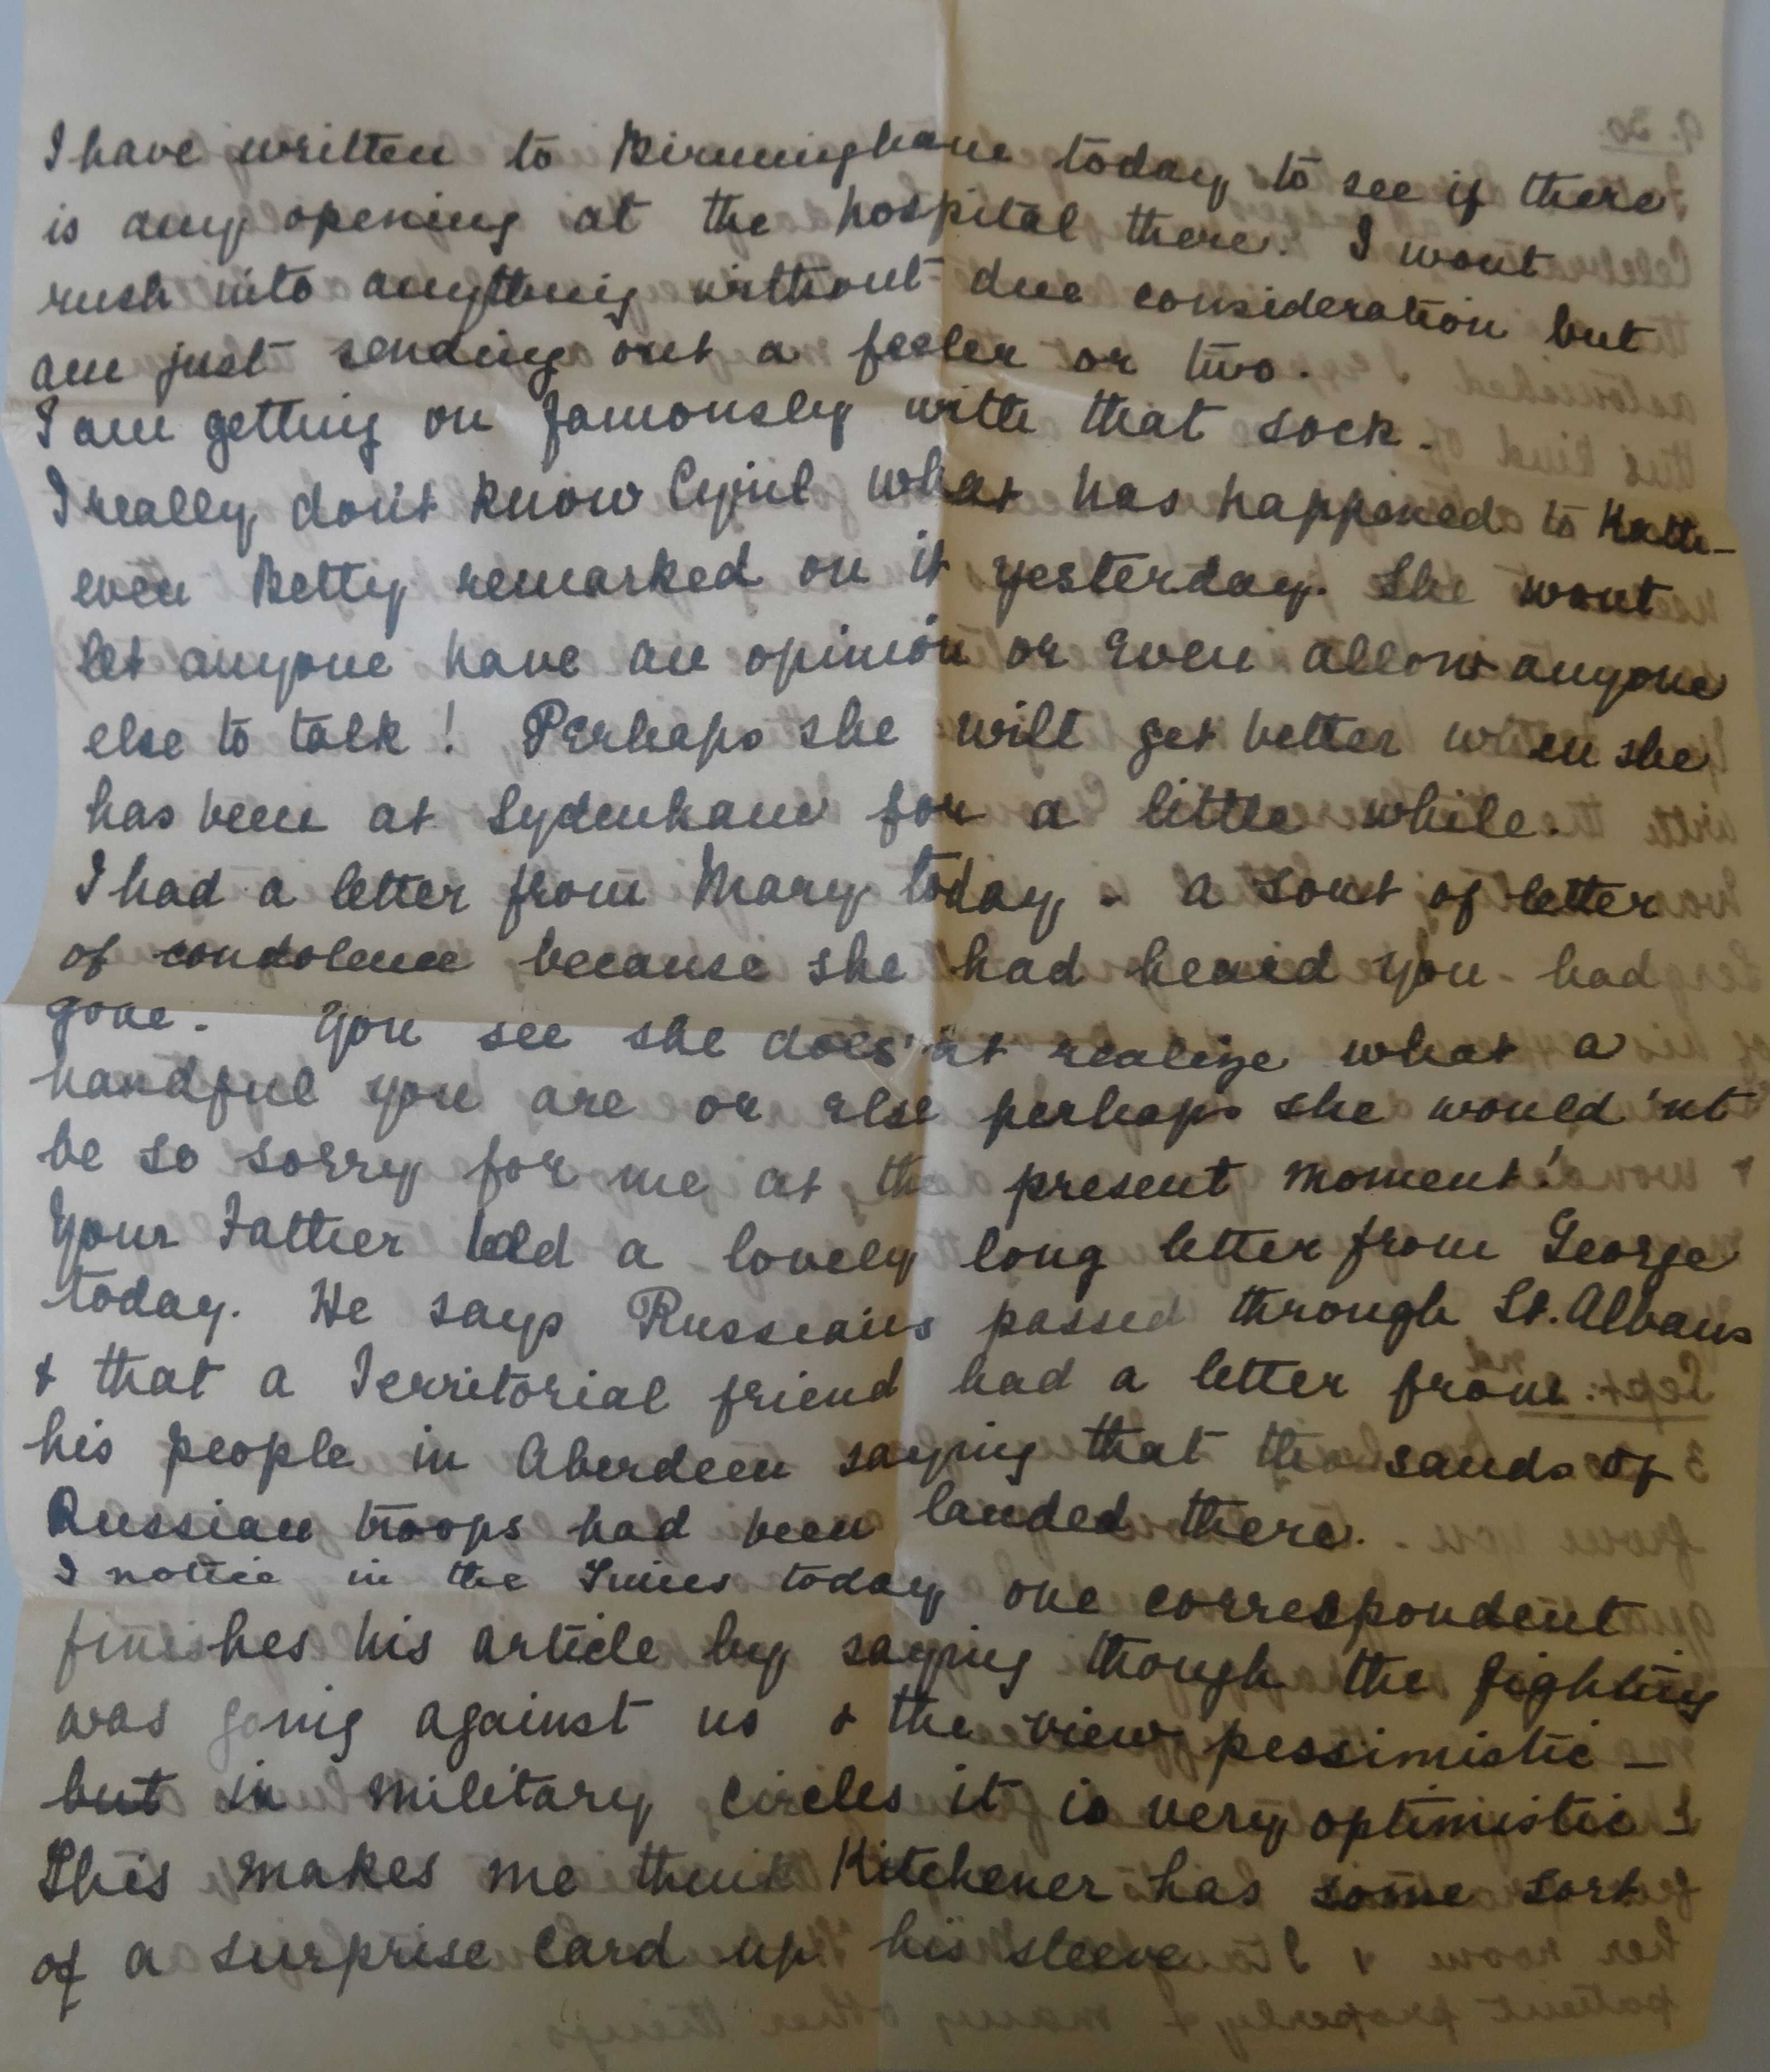 I have written to Birmingham today to see if there
is any opening at the hospital there. I wont
rush into anything without due consideration but
am just sending out a feeler or two.
I am getting on famously with that sock.
I really don't know Cyril what has happened to Katti-
even Betty remarked on it yesterday. She wont
let anyone have an opinion or even allow anyone
else to talk! Perhaps she will get better when she
has been at Sydenham for a little while.
I had a letter from Mary today - a sort of letter
of condolence because she had heard you had
gone. You see she does'nt realize what a
handful you are or else perhaps she would'nt
be so sorry for me at the present moment!
Your Father had a lovely long letter from George
today. He says Russians passed through St. Albans
& that a Territorial friend had a letter from
his people in Aberdeen saying that thousands of
Russian troops had been landed there.
I notice in the Times today one correspondent
finishes his article by saying though the fighting
was going against us & the view pessimistic -
but in military circles it is very optimistic
This makes me think Kitchener has some sort
of a surprise card up his sleeve